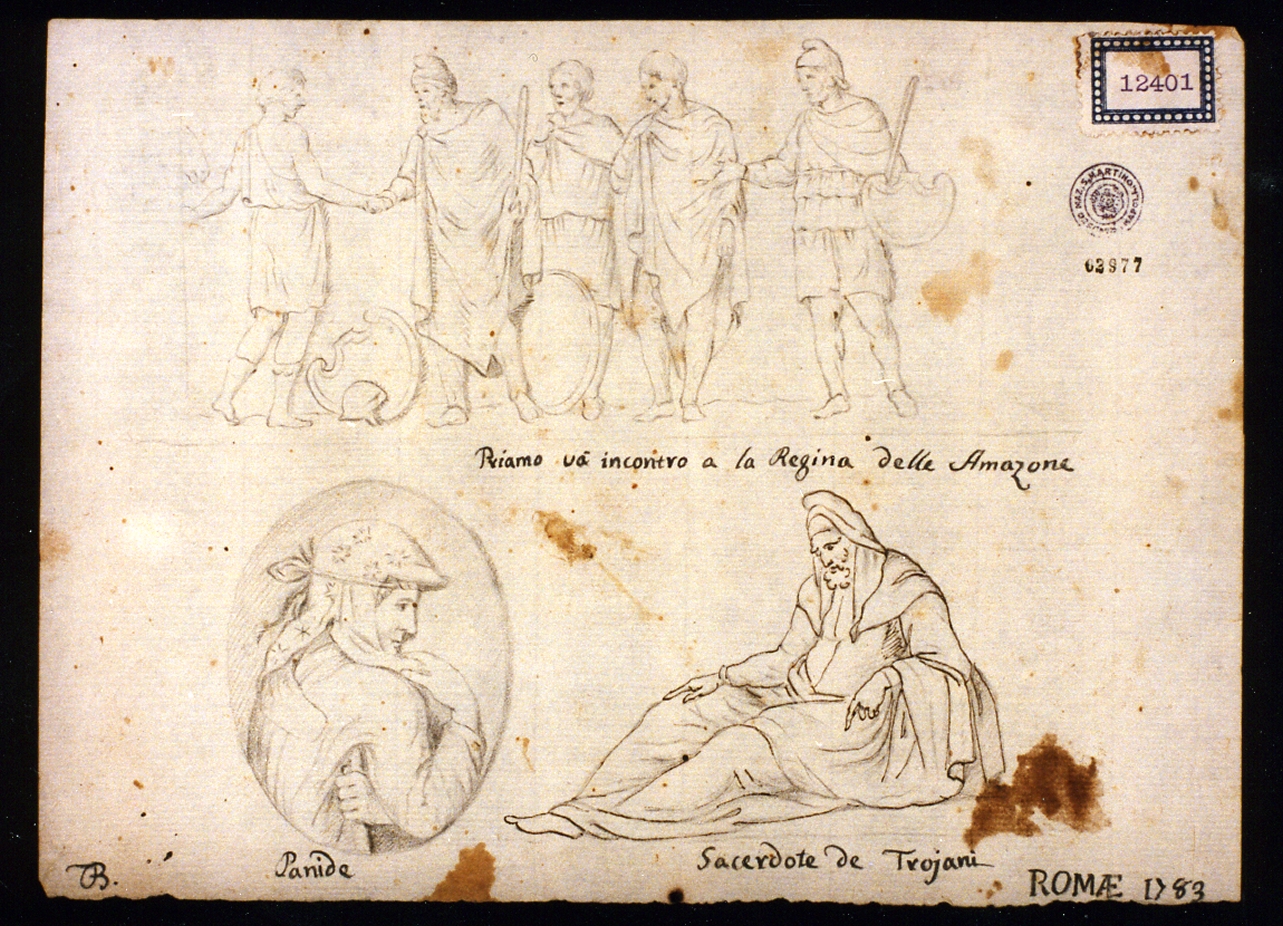 12401
NAZ. S. MARTINO
NAPOLI
02977
Priamo và incontro a la Regina delle Amazone
Panide
Sacerdote de Trojani
TB.
ROMÆ 1783